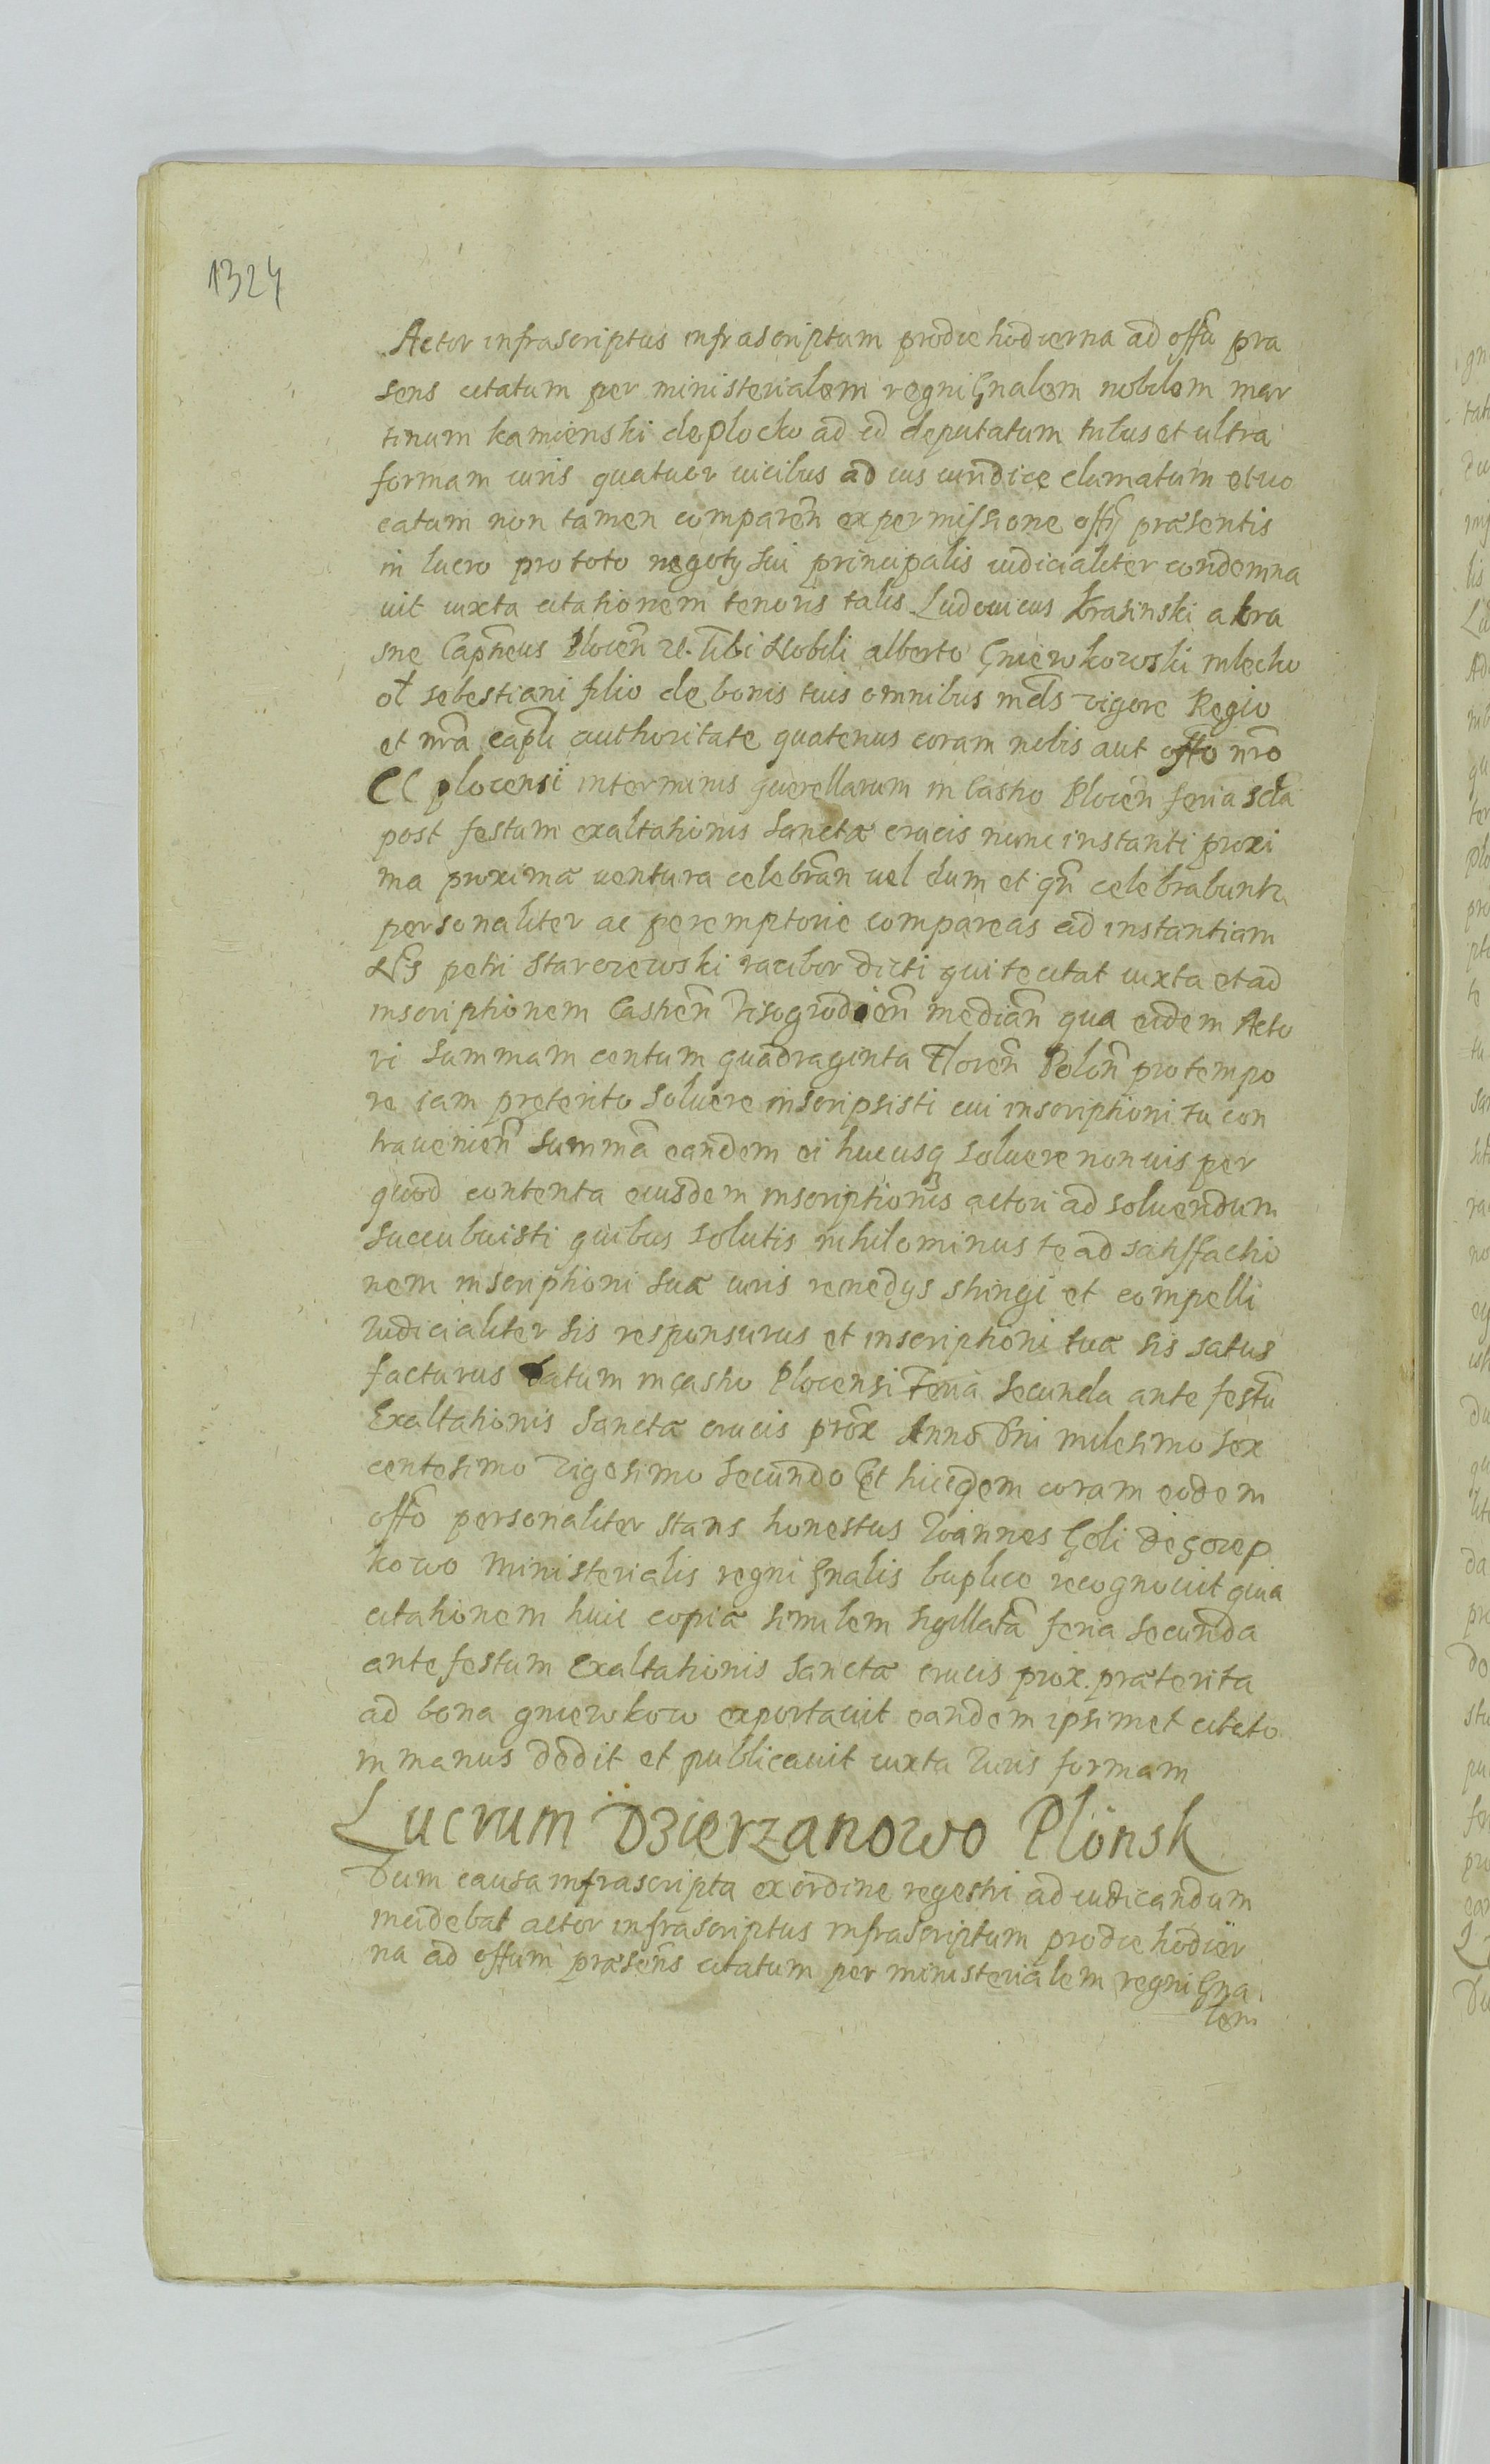 1324
Actor infrascriptus infrascriptum pro die hodierna ad offm̃ pra
sens citatum per ministerialem regni Gnalem nobilem mar
tinum kamienski de plocko ad id deputatum tribus et ultra
formam iuris quatuor vicibus ad ius iuridice clamatum et uo
catum non tamen comparen̄ ex permissione offij præsentis
in lucro pro toto negoty sui principalis iudicialiter condemna
uit iuxta citationem tenoris talis Ludouicus krasinski a kra
sne Capneus Plocen̄ &. Tibi Nobili alberto Gniewkowski mlecko
ol sebestiani filio de bonis tuis omnibus mds vigore Regio
et nrã capli authoritate quatenus coram nobis aut offo nrõ
Cl plocensi in terminis querellarum in Castro Plocen̄ feria scda
post festum exaltationis Sanctæ crucis nunc instanti proxi
ma proxima uentura celebran̄ uel dum et qn̄ celebrabuntr
personaliter ac peremptorie compareas ad instantiam
Nlis petri Starozewski racibor dicti qui te citat iuxta et ad
inscriptionem Castren̄ Visogrodien̄ median̄ qua eidem Acto
ri Summam centum quadraginta Floren̄ Polon̄ pro tempo
re iam preterito Soluere inscripsisti cui inscriptioni tu con
trauenien̄ Summã eandem ei hucusq soluere non uis per
quod contenta eiusdem inscriptionis actori ad soluendum
Succubuisti quibus solutis nihilominus te ad satisfactio
nem inscriptioni Suæ iuris remedys stringi et compelli
Iudicialiter sis responsurus et inscriptioni tuæ sis satus
facturus Datum in castro Plocensi Feria Secunda ante festũ
Exaltationis Sanctæ crucis prox Anno Dni milesimo sex
centesimo Vigesimo Secundo Et hic idem coram eodem
offo personaliter stans honestus Ioannes Goli de
kowo Ministerialis regni Gnalis buplice recognouit quia
citationem huic copiæ similem sigillatã feria Secunda
ante festum Exaltationis Sanctæ crucis prox. præterita
ad bona gniewkowo exportauit eandem ipsimet citato
in manus dedit et publicauit iuxta Iuris formam
Lucrum Dzierzanowo Plönsk
Dum causa infrascripta ex ordine regestri ad iudicandum
incidebat actor infrascriptus infrascriptum pro die hodier
na ad offium præsens citatum per ministerialem regni Gna
lem